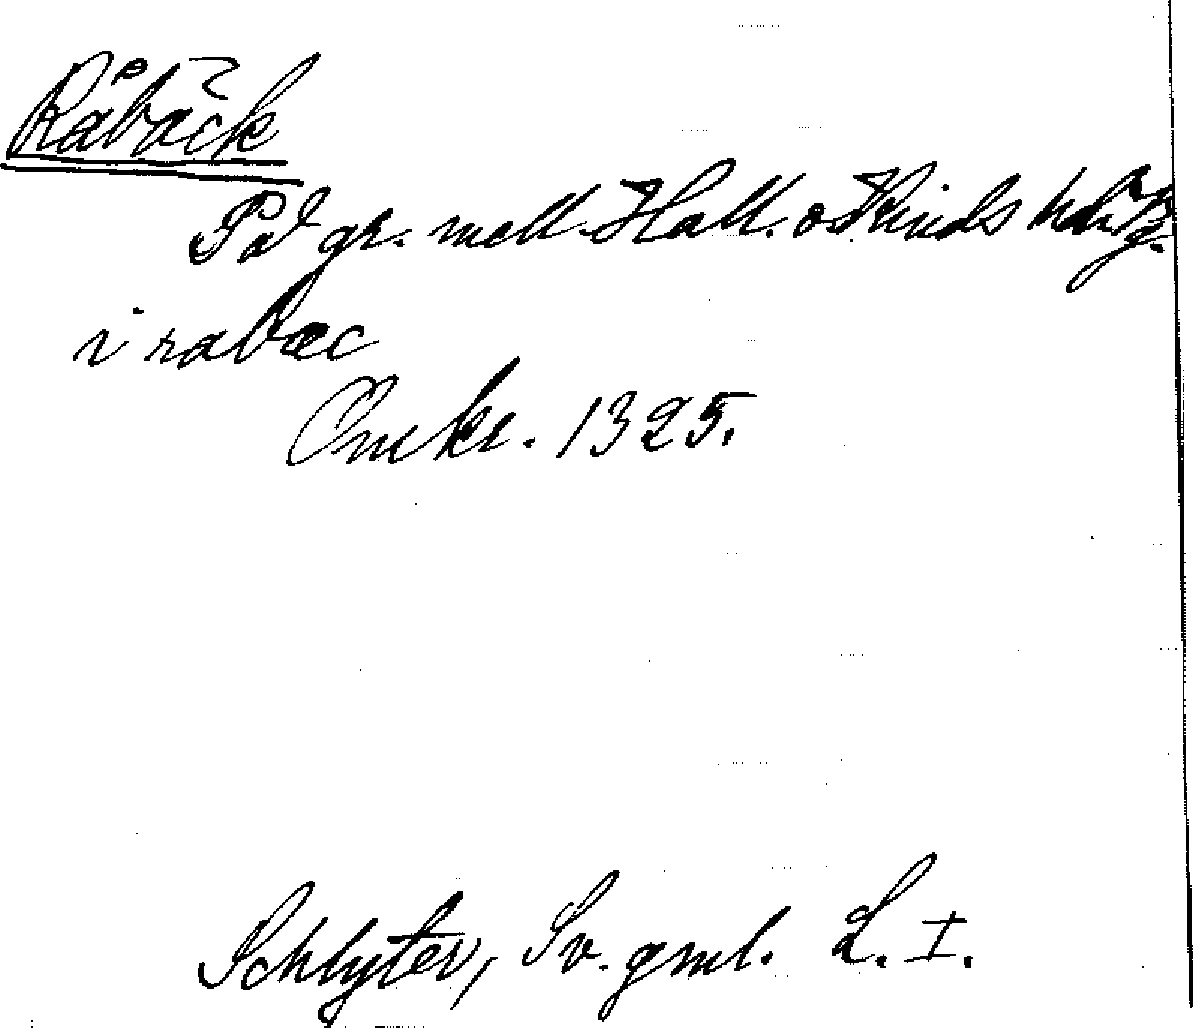 Råbäck
På gr. mell. Hall. o Kinds hd Vg.
i rabæc
Omkr. 1325.
Schlyter, Sv. gml. L. I.